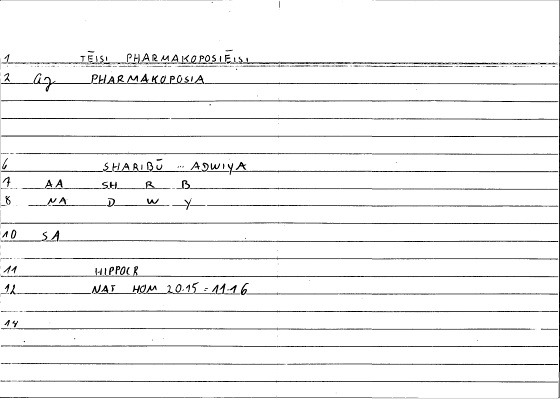 1 TĒISI PHARMAKOPOSIĒISI
2 az PHARMAKOPOSIA
6 SHARIBŪ ... ADWIYA
7 AA SH R B
8 NA D W Y
10 SA
11 HIPPOCR
12 NAT HOM 20.15 = 11-16
14